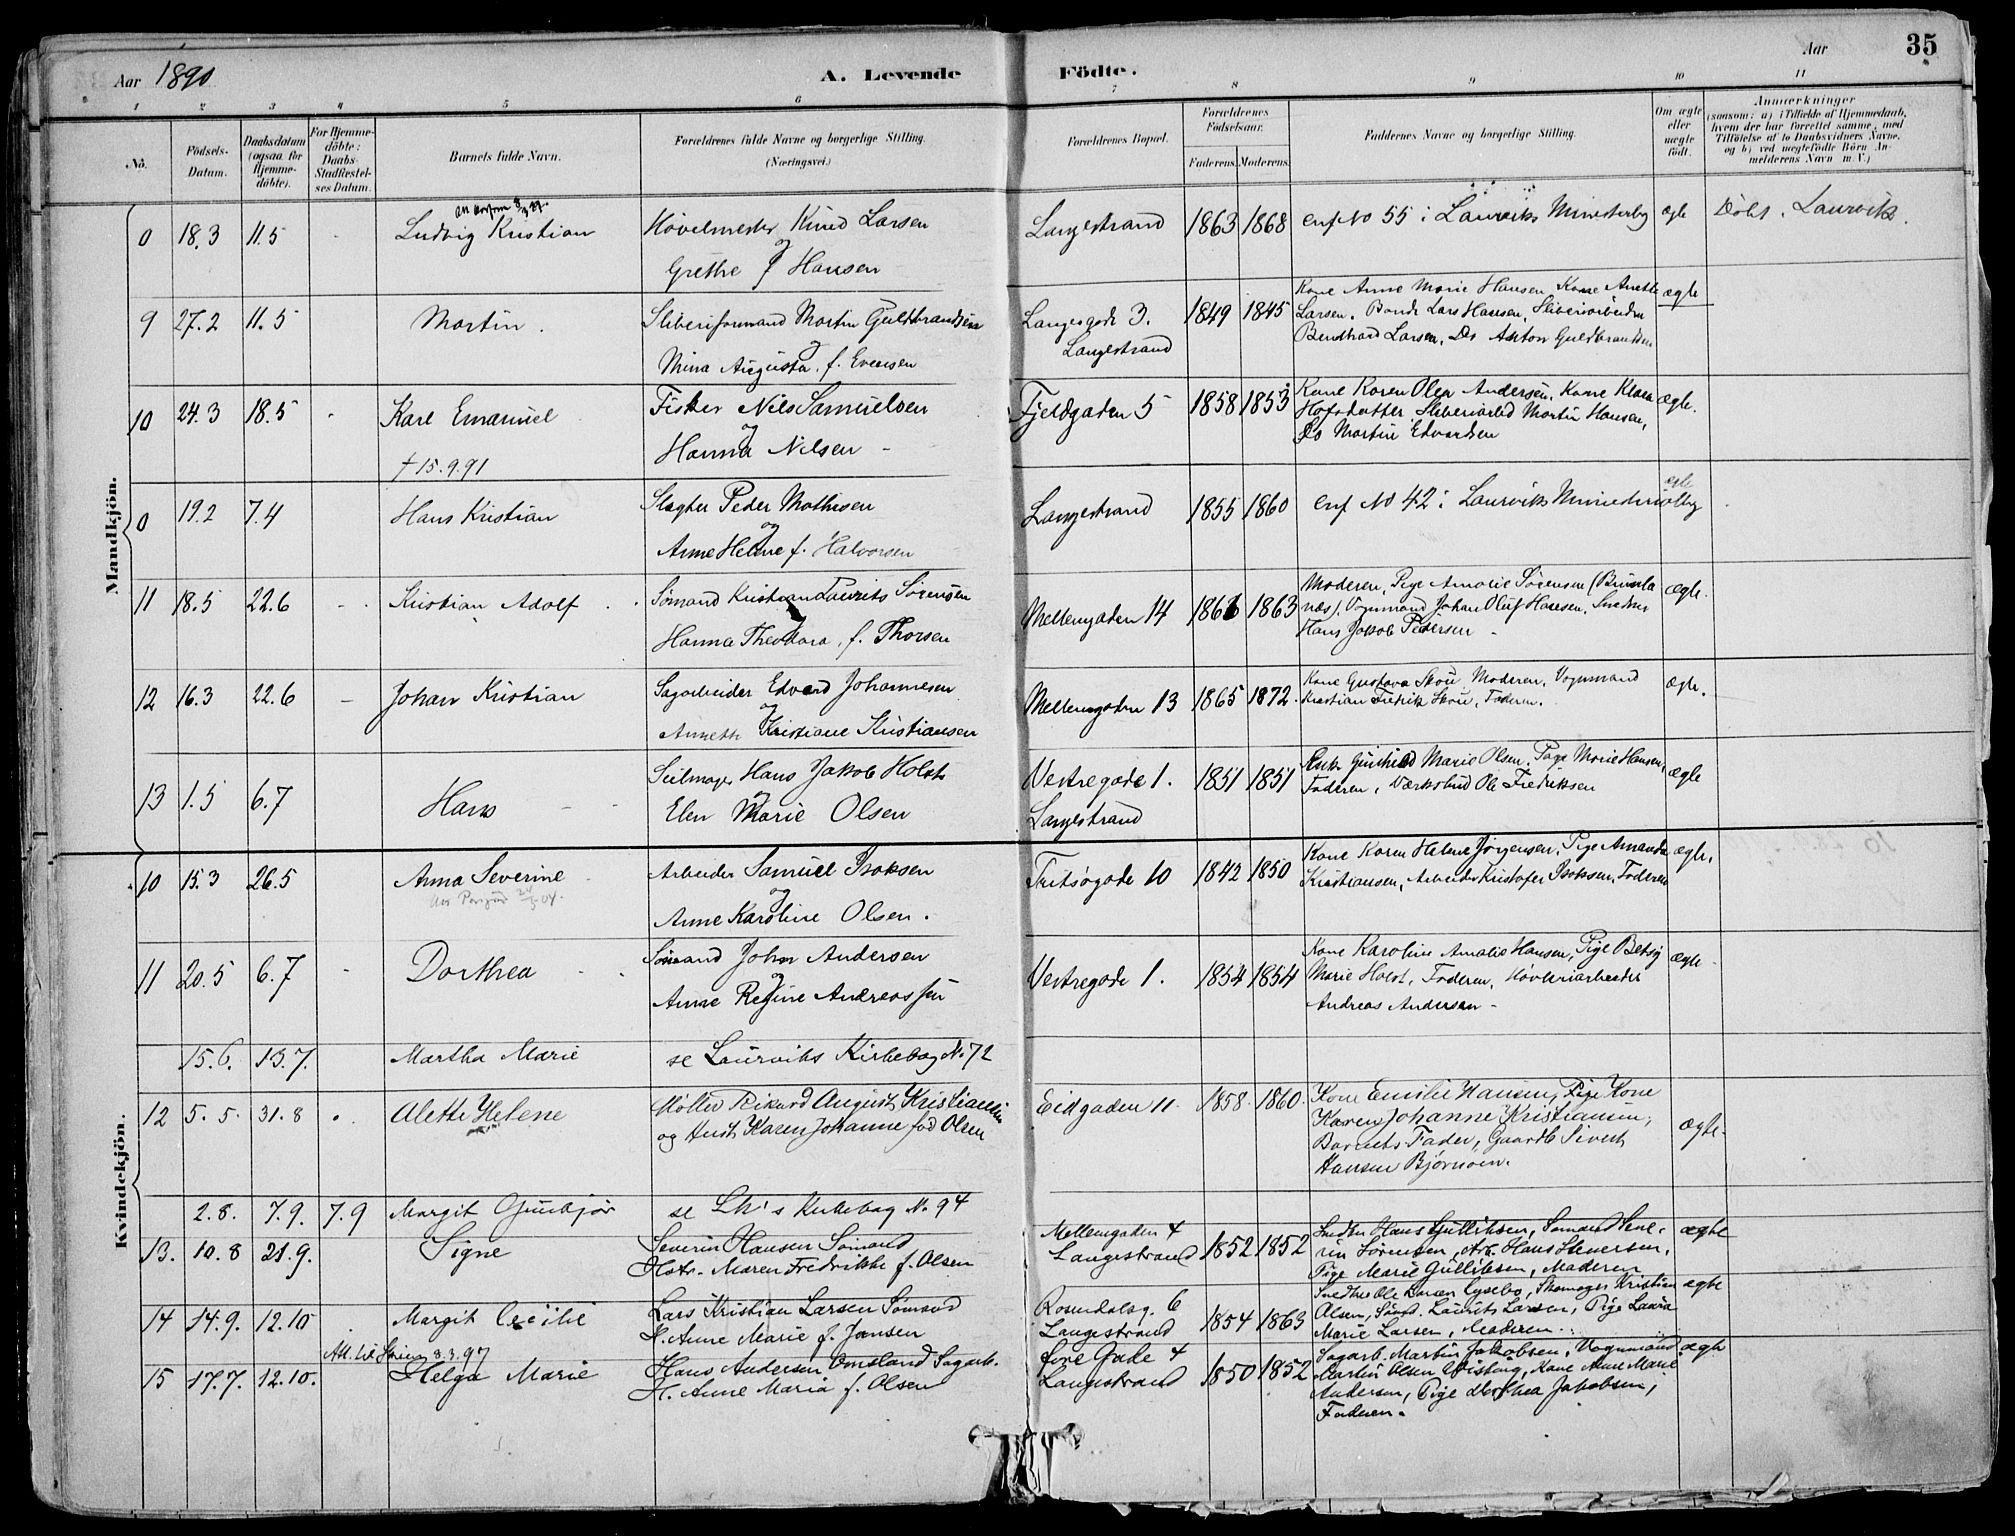 Aar 1890 A. Levende
Födte. Aar 35
1 2 3 4 5 6
7 8 9 10 11
No.
Födsels-Datum.
Daabsdatum (ogsaa for Hjemme-döbte).
For Hjemme-döbte: Daabs-Stadfæstel-ses Datum.
Barnets fulde Navn.
Forældrenes fulde Navne og borgerlige Stilling.
(Næringsvei.)
Forældrenes Bopæl.
Forældrenes Födselsaar.
Faderens. Moderens.
Faddernes Navne og borgerlige Stilling.
Om ægte eller uægte födt.
Anmærkninger
(saasom: a) i Tilfælde af Hjemmedaab,
hvem der har forrettet samme, med
Tilföielse af to Daabsvidners Navne,
og b) ved uægtefödte Börn An-
melderens Navn m. V.)
Mandkjön.
0 18.3 11.5 Ludvig Kristian Høvelmester Knud Larsen
og
Grethe f Hansen
Langestrand 1863 1868 cnf No 55 i Laurviks Ministerby ægte Døbt i Laurvik.
9 27.2 11.5 Martin. Sliberiformand Martin Guldbrandsen
og
Mina Augusta f. Evensen
Langegade 3.
Langestrand 1849 1845
Kone Anne Marie Hansen, Kone Anette ægte
Larsen. Bonde Lars Hansen, Sliberiarbeider
Berndhard Larsen, Do Anton Guldbrandsen
10 24.3 18.5 Karl Emanuel Fisker Nils Samuelsen
og
† 15.9.91 Hanna Nilsen
Fjeldgaden 5 1858 1853 Kone Karen Olea Andersen, Kone Klara ægte.
Hofsdatter, Sliberiarbid Martin Hansen,
Do Martin Edvardsen
0 19.2 7.4 Hans Kristian Slagter Peder Mathisen
og
Anne Helene f. Halvorsen
Langestrand 1855 1860 cnf No 42 i Laurviks ægte
11 18.5 22.6 Kristian Adolf Sømand Kristian Laurits Sørensen
Hanna Theodora, f. Thorsen
Mellemgaden 14 1866 1863 Moderen, Pige Amalie Sørensen (Brunla ægte.
næs), Vognmand Johan Oluf Hansen, Snedker
Hans Jakob Pedersen
12 16.3 22.6 Johan Kristian Sagarbeider Edvard Johannesen
og
Annette Kristiane Kristiansen
Mellemgaden 13 1865 1872. Kone Gustava Skou, Moderen, Vognmand ægte.
Kristian Fredrik Skou, Faderen.
13 1.5 6.7 Hans Seilmager Hans Jakob Holst
og
Elen Marie Olsen
Vestregade 1.
Langestrand 1851 1851 Enke Gunhild Marie Olsen. Pige Marie Hansen, ægte
Faderen, Værksbud Ole Fredriksen
Kvindekjön.
10 15.3 26.5 Anna Severine Arbeider Samuel Isaksen
og
Anne Karoline Olsen.
Fritsøgade 10 1842 1850 Kone Karen Helene Jørgensen, Pige Amanda ægte.
Kristiansen, Arbeider Kristofer Isaksen, Faderen
11 20.5 6.7 Dorthea Sømand Johan Andersen
og
Anne Regine Andreassen
Vestregade 1. 1854 1854 Kone Karoline Amalie Hansen, Pige Betsy ægte
Marie Holst, Faderen, Høvleriarbeider
Andreas Andersen
15.6. 13.7. Martha Marie se Laurviks Kirkebog No 72
12 5.5. 31.8 Alette Helene Møller Rikard August Kristiansen
og Hustr. Karen Johanne fød Olsen
Eidgaden 11. 1858. 1860. Kone Emilie Hansen, Pige Kone
Karen Johanne Kristiansen,
Barnets Fader, Gaardb. Sivert ægte.
Hansen Bjørnøen.
2.8. 7.9. 7.9 Margit Gunbjør se Lk's Kirkebog No 94
13. 10.8 21.9. Signe Severin Hansen Sømand
Hstr. Maren Fredrikke f. Olsen
Mellemgaden 4
Langestrand 1852 1852 Snedker Hans Gulliksen, Sømand Seve- ægte
rin Sørensen, Arb. Hans Steversen,
Pige Marie Gulliksen, Moderen
14 14.9. 12.10 Margit Cecilie Lars Kristian Larsen Sømand
H. Anne Marie f. Jansen
Rosendalsg. 6
Langestrand 1854 1863 Lysebo, Skomager Kristian ægte
Olsen, Sømd. Laurits Larsen, Pige Laura
Marie Larsen, Moderen.
Att. til Skien 3.3.97
15 17.7. 12.10. Helga Marie Hans Andersen Omsland Sagarb.
H. Anne Maria f. Olsen
Øvre Gade 4
Langestrand 1850 1852 Sagarb. Martin Jakobsen, Vognmand ægte
Martin Olsen Wisting, Kone Anne Marie
Andersen, Pige Dorthea Jakobsen,
Faderen.